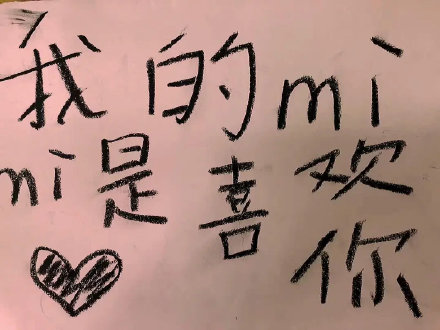 我的mi
mi是喜欢
你